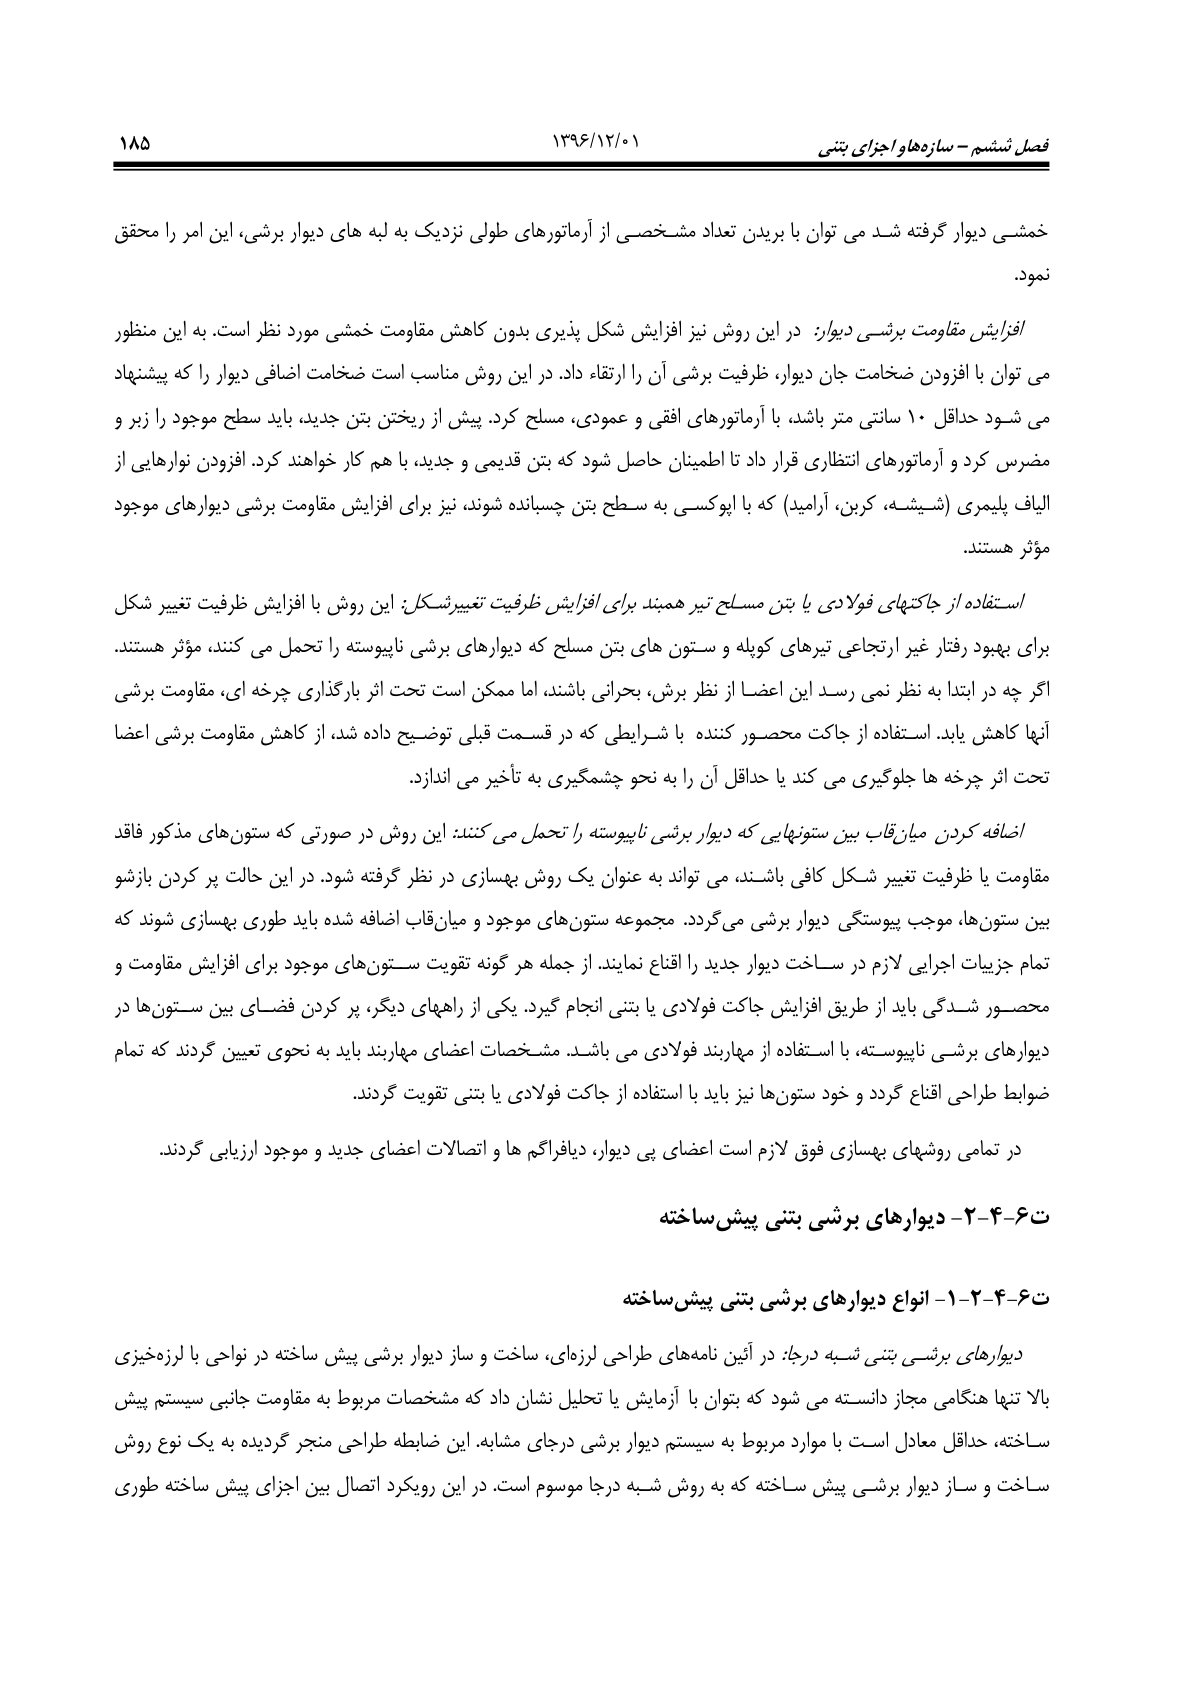 فصل ششم – سازه‌هاو اجزای بتنی ۱۳۹۶/۱۲/۰۱ ۱۸۵
خمشی دیوار گرفته شد می توان با بریدن تعداد مشخصی از آرماتورهای طولی نزدیک به لبه های دیوار برشی، این امر را محقق
نمود.
افزایش مقاومت برشی دیوار: در این روش نیز افزایش شکل پذیری بدون کاهش مقاومت خمشی مورد نظر است. به این منظور
می توان با افزودن ضخامت جان دیوار، ظرفیت برشی آن را ارتقاء داد. در این روش مناسب است ضخامت اضافی دیوار را که پیشنهاد
می شود حداقل ۱۰ سانتی متر باشد، با آرماتورهای افقی و عمودی، مسلح کرد. پیش از ریختن بتن جدید، باید سطح موجود را زبر و
مضرس کرد و آرماتورهای انتظاری قرار داد تا اطمینان حاصل شود که بتن قدیمی و جدید، با هم کار خواهند کرد. افزودن نوارهایی از
الیاف پلیمری (شیشه، کربن، آرامید) که با اپوکسی به سطح بتن چسبانده شوند، نیز برای افزایش مقاومت برشی دیوارهای موجود
مؤثر هستند.
استفاده از جاکتهای فولادی یا بتن مسلح تیر همبند برای افزایش ظرفیت تغییرشکل: این روش با افزایش ظرفیت تغییر شکل
برای بهبود رفتار غیر ارتجاعی تیرهای کوپله و ستون های بتن مسلح که دیوارهای برشی ناپیوسته را تحمل می کنند، مؤثر هستند.
اگر چه در ابتدا به نظر نمی رسد این اعضا از نظر برش، بحرانی باشند، اما ممکن است تحت اثر بارگذاری چرخه ای، مقاومت برشی
آنها کاهش یابد. استفاده از جاکت محصور کننده با شرایطی که در قسمت قبلی توضیح داده شد، از کاهش مقاومت برشی اعضا
تحت اثر چرخه ها جلوگیری می کند یا حداقل آن را به نحو چشمگیری به تأخیر می اندازد.
اضافه کردن میان‌قاب بین ستونهایی که دیوار برشی ناپیوسته را تحمل می کنند: این روش در صورتی که ستون‌های مذکور فاقد
مقاومت یا ظرفیت تغییر شکل کافی باشند، می تواند به عنوان یک روش بهسازی در نظر گرفته شود. در این حالت پر کردن بازشو
بین ستون‌ها، موجب پیوستگی دیوار برشی می‌گردد. مجموعه ستون‌های موجود و میان‌قاب اضافه شده باید طوری بهسازی شوند که
تمام جزییات اجرایی لازم در ساخت دیوار جدید را اقناع نمایند. از جمله هر گونه تقویت ستون‌های موجود برای افزایش مقاومت و
محصور شدگی باید از طریق افزایش جاکت فولادی یا بتنی انجام گیرد. یکی از راههای دیگر، پر کردن فضای بین ستون‌ها در
دیوارهای برشی ناپیوسته، با استفاده از مهاربند فولادی می باشد. مشخصات اعضای مهاربند باید به نحوی تعیین گردند که تمام
ضوابط طراحی اقناع گردد و خود ستون‌ها نیز باید با استفاده از جاکت فولادی یا بتنی تقویت گردند.
در تمامی روشهای بهسازی فوق لازم است اعضای پی دیوار، دیافراگم ها و اتصالات اعضای جدید و موجود ارزیابی گردند.
ت۶-۴-۲- دیوارهای برشی بتنی پیش‌ساخته
ت۶-۴-۲-۱- انواع دیوارهای برشی بتنی پیش‌ساخته
دیوارهای برشی بتنی شبه درجا: در آئین نامه‌های طراحی لرزه‌ای، ساخت و ساز دیوار برشی پیش ساخته در نواحی با لرزه‌خیزی
بالا تنها هنگامی مجاز دانسته می شود که بتوان با آزمایش یا تحلیل نشان داد که مشخصات مربوط به مقاومت جانبی سیستم پیش
ساخته، حداقل معادل است با موارد مربوط به سیستم دیوار برشی درجای مشابه. این ضابطه طراحی منجر گردیده به یک نوع روش
ساخت و ساز دیوار برشی پیش ساخته که به روش شبه درجا موسوم است. در این رویکرد اتصال بین اجزای پیش ساخته طوری